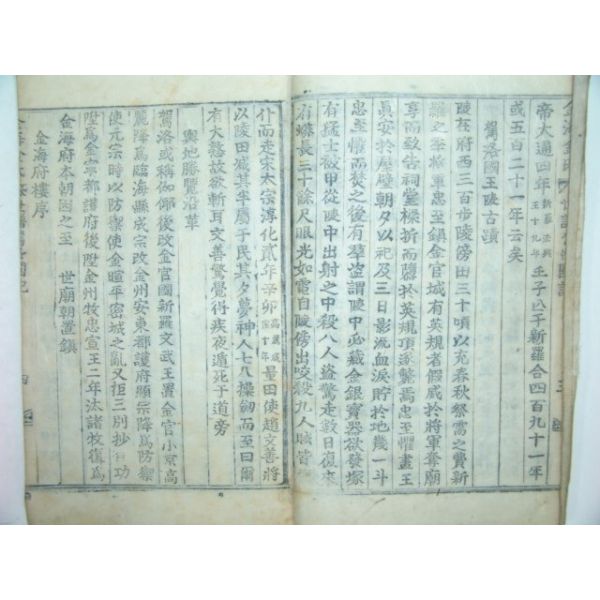 帝大通四年 新羅法興王十九年 壬子入于新羅合四百九十一年
或五百二十一年云矣
駕洛國王陵古蹟
陵在府西三百步陵傍田三十頃以充春秋祭需之費新
羅之季將軍忠至鎭金官城有英規者假威於將軍奪廟
享而致告祠堂樑折而壓於英規頂遂斃焉忠至懼畫王
眞安於壁朝夕以祀及三日影流血淚貯於地幾一斗
忠至懼而焚之後有群盜謂陵中必藏金銀寶器欲發塚
有猛士披甲從陵中出射之中殺八人盜驚走數日復來
有蟒長三十餘尺眼光如電自陵傍出咬殺九人賊皆
仆而走宋太宗淳化貳年辛卯 高麗成宗十年 量田使趙文善將
以陵田減其半屬于民其夕夢神人七八操釰而至曰爾
有大愆故欲斬耳文善驚覺得疾夜遁死于道旁
輿地勝覽沿革
駕洛或稱伽倻後改金官國新羅文武王置金官小京高
麗降爲臨海縣成宗改金州安東都護府顯宗降爲防禦
使元宗時以防禦使金暄平密城之亂又拒三別抄功
陞爲金寧都護府後陞金州牧忠宣王二年汰諸牧復爲
金海府本朝因之至 世廟朝置鎭
金海府樓序